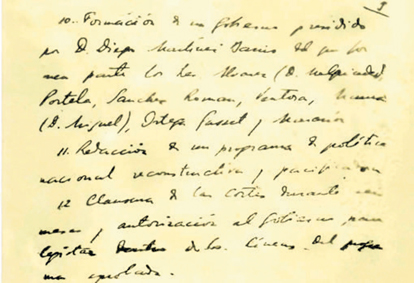 3
10. Formación de un gobierno presidido
por D. Diego Martínez Barrio del que for
men parte los Sres
Portela, Sanchez Roman, Ventosa, Maura
(D. Miguel), Ortega Gasset y Marañon
11. Redacción de un programa de política
nacional reconstructiva y
12 Clausura de las Cortes durante seis
meses y autorización al gobierno para
legislar dentro de las líneas del progra
ma aprobado.